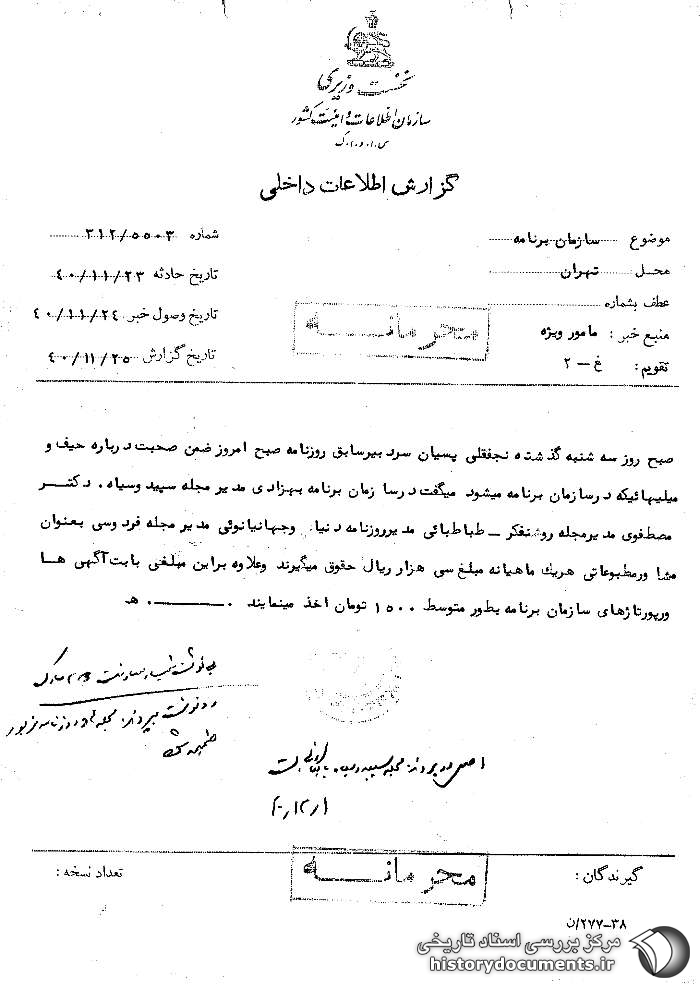 نخست وزیری
سازمان اطلاعات و امنیت کشور
س.ا.و.ا.ک
گزارش اطلاعات داخلی
موضوع سازمان برنامه
شماره ۳۱۲/۵۵۰۳
محل تهران
تاریخ حادثه ۴۰/۱۱/۲۳
عطف بشماره
تاریخ وصول خبر ۴۰/۱۱/۲۴
منبع خبر : مامور ویژه
محرمانه
تقویم : غ – ۲
تاریخ گزارش ۴۰/۱۱/۲۵
صبح روز سه شنبه گذشته نجفقلی پسیان سردبیرسابق روزنامه صبح امروز ضمن صحبت درباره حیف و
میلیهائیکه درسازمان برنامه میشود میگفت درسا زمان برنامه بهزادی مدیر مجله سپید وسیاه . دکتر
مصطفوی مدیرمجله روشنفکر – طباطبائی مدیرروزنامه دنیا . وجهانبانوئی مدیر مجله فردوسی بعنوان
مشا ورمطبوعاتی هریك ماهیانه مبلغ سی هزار ریال حقوق میگیرند وعلاوه براین مبلغی بابت آگهی ها
ورپورتاژهای سازمان برنامه بطور متوسط ۱۵۰۰ تومان اخذ مینمایند . ه
اصل در پرونده مجله سپید و سیاه بایگانی است
گیرندگان :
محرمانه
تعداد نسخه :
۳۸–۲۷۷/ن
مرکز بررسی اسناد تاریخی
historydocuments.ir